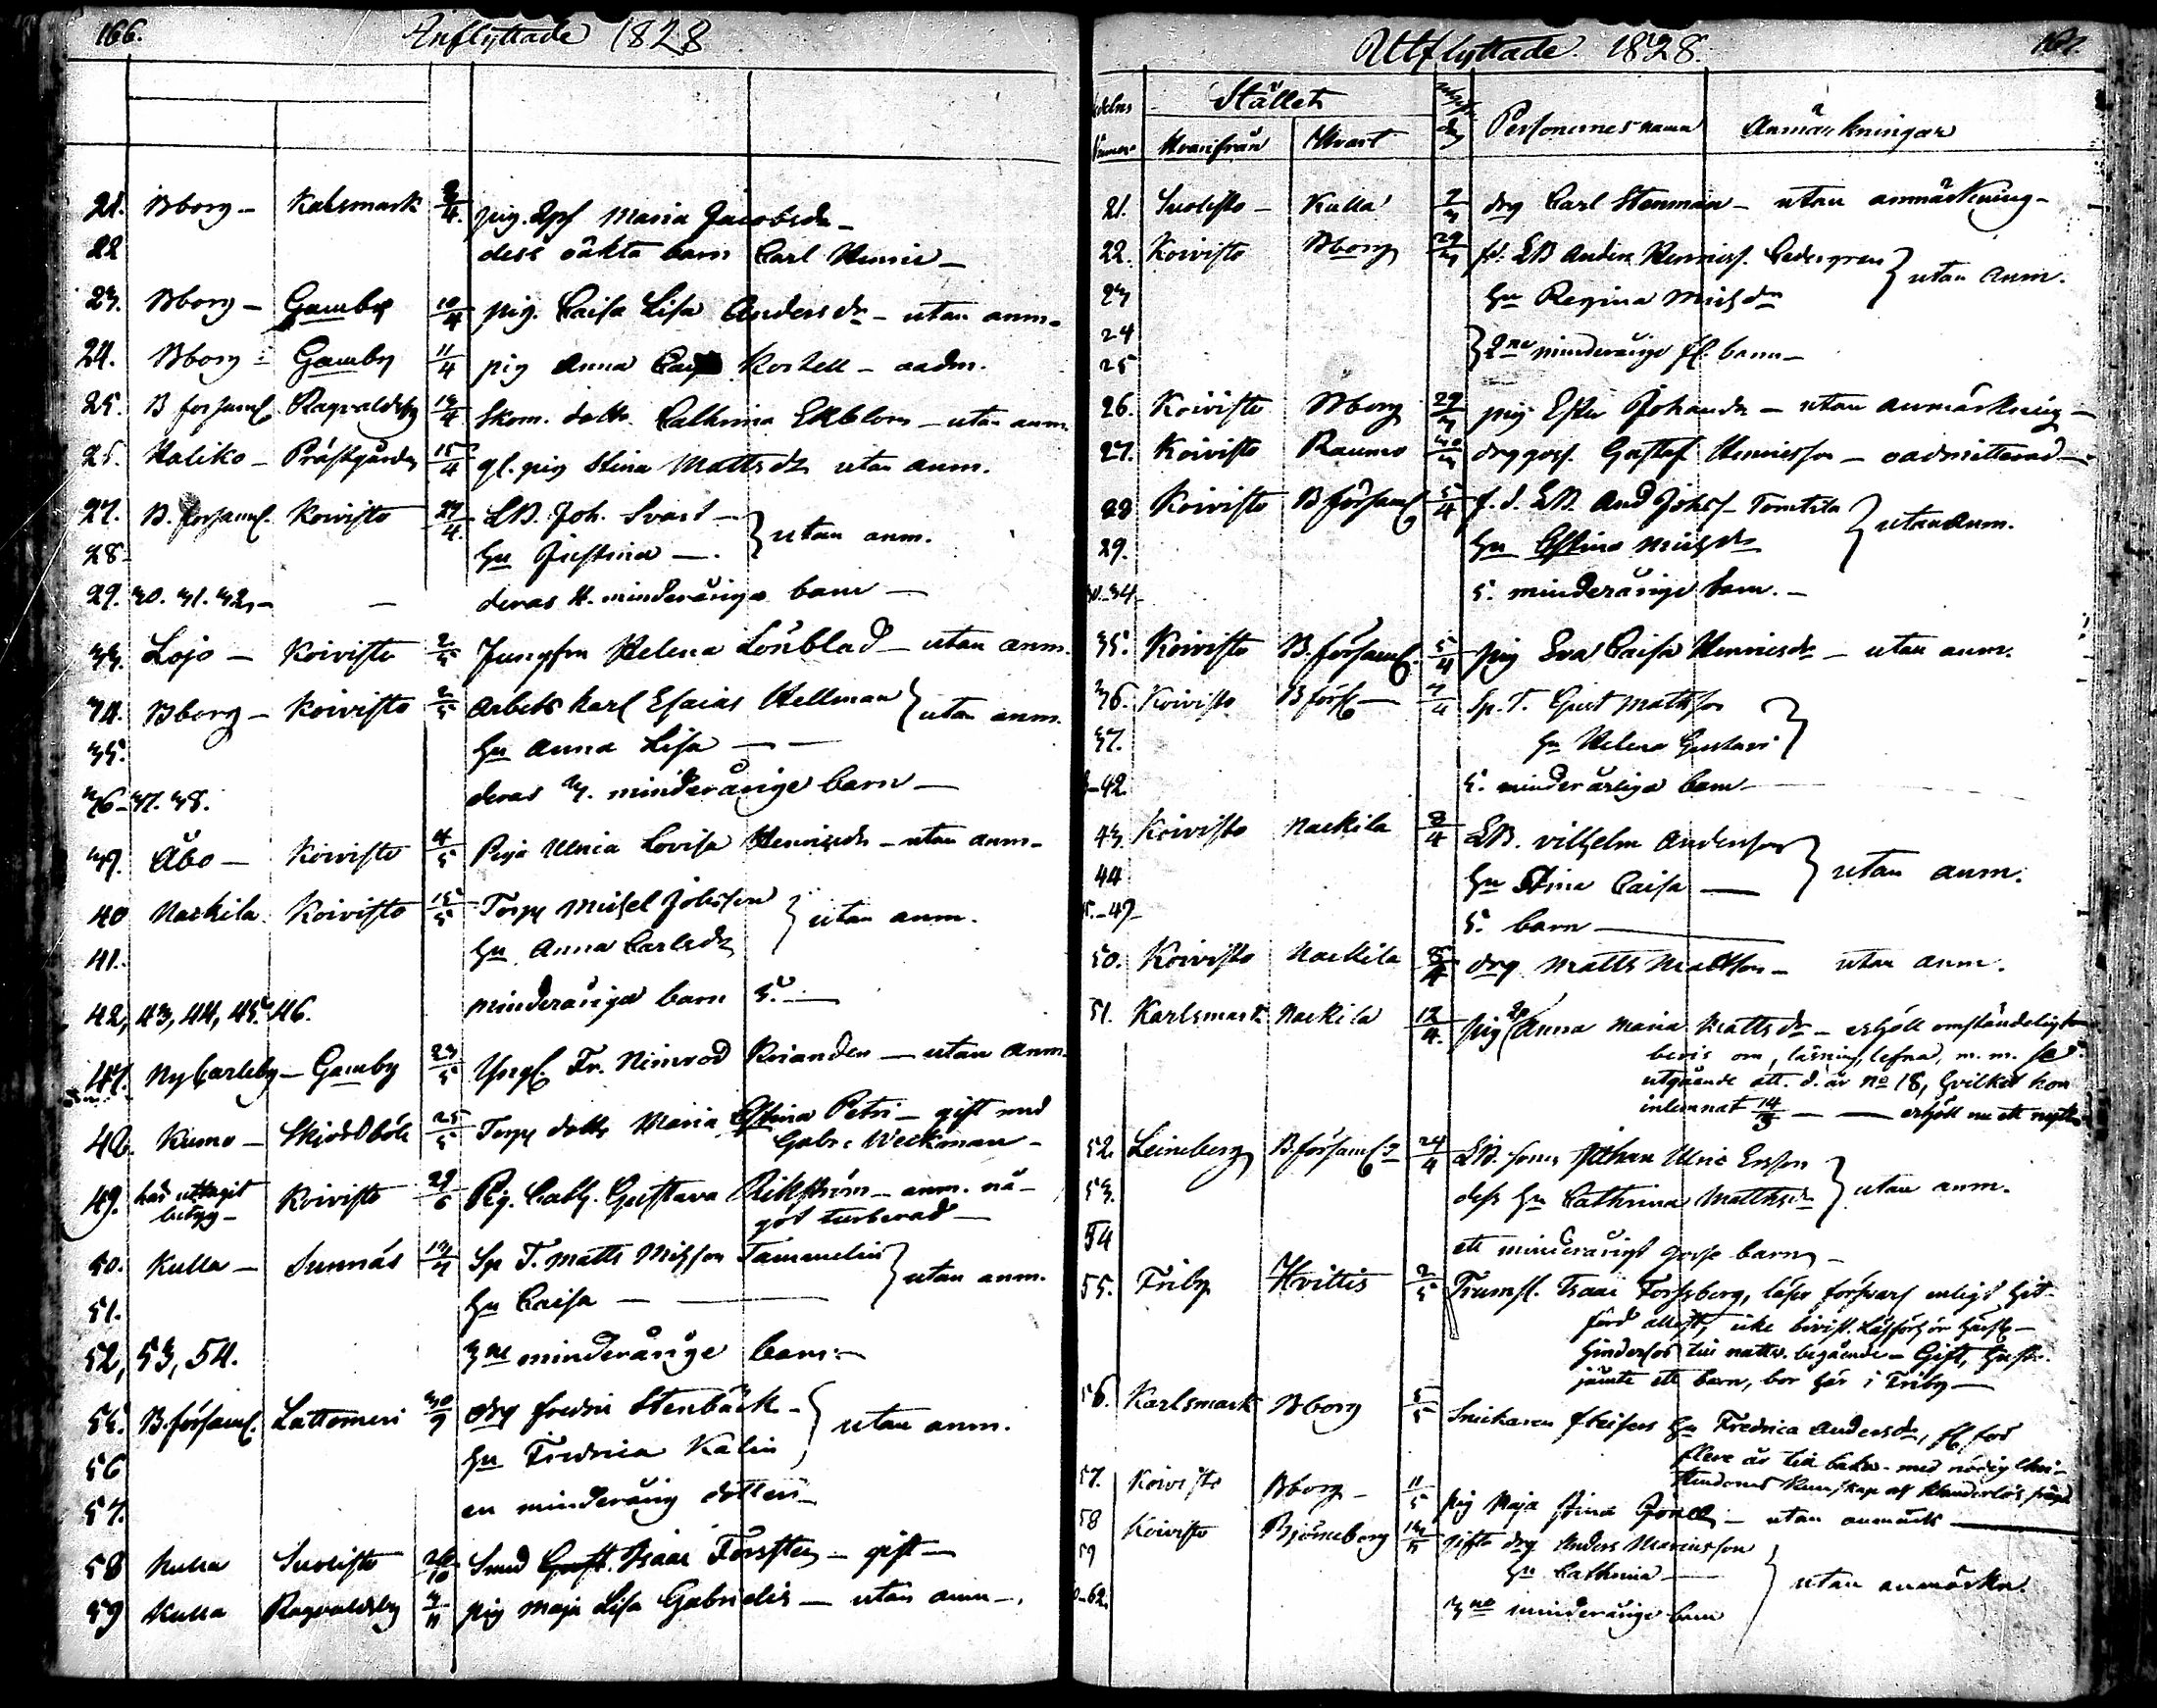 166. Inflyttade 1828
21. Bborg - Kalsmark 3/4. pig. Maria Jacobsdr -
22 dess oäkta barn Carl Henric -
23. Bborg - Gamby 10/4 pig. Caisa Lisa Andersdr - utan anm -
24. Bborg - Gamby 11/4 pig Anna Kortell - oadm.
25. B församl. Ragvaldsby 13/4 Skom. dottr. Cathrina Ekblom - utan anm
26. Haliko - Prästgården 15/4 gl. pig Stina Mattsdr utan anm.
27. B. församl. Koivisto 27/4. LB. Joh. Svart - } utan anm.
28 hu Justina -
29. 30. 31. 32, - - deras 4. minderåriga barn -
33. Lojo - Koivisto 2/5 Jungfru Helena Lönblad - utan anm.
34. Bborg - Koivisto 2/5 Arbets karl Esaias Hellman } utan anm.
35. hu Anna Lisa - -
36 - 37. 38. deras 3. minderårige barn -
39. Åbo - Koivisto 4/5 Piga Ulrica Lovisa Henricsdr - utan anm -
40 Nackila Koivisto 15/5 Torp Michel Johsson } utan anm.
41. hu Anna Carlsdr
42, 43, 44, 45. 46. minderåriga barn 5. -
47. Ny Carleby - Gamby 23/5 Yngl. Fr. Nimrod - utan anm.
48. Kumo - Skjöldböle 25/5 Torp dottr Maria Stina Petri - gift med
Gabr. Weckman -
49. har uttagit Koivisto 29/6 Pig. Cath. Gustava Rikström - anm. nå-
betyg - got
50. Kulla - Sunnäs Sp T. Matts Michsson Tammelin } utan anm.
51. hu Caisa -
52, 53, 54. 3ne minderårige barn -
55. B. församl. Lattomeri 30/9 drg Fredric Stenbäck - } utan anm.
56 hu Fredrica Kalin
57. en minderårig dotter -
58 Kulla Suolisto Smed Isaac Forsten - gift -
59 Kulla Ragvaldsby 3/11 pig Maja Lisa Gabrielis - utan anm -
Utflyttade 1828.
Stället
Hvarifrån Hvart Personernes namn Anmärkningar
21. Suolisto - Kulla 7/3 drg Carl Stenman - utan anmärkning -
22. Koivisto Bborg 29/3 fd. LB Anders Henricss. Cedergren } utan anm.
23 hu Regina Michsdr
24 } 2ne minderårige fl. barn -
25
26. Koivisto Bborg 29/3 pig Ester Johansdr - utan anmärkning -
27. Koivisto Raumo 30/3 drg goss. Gustaf Henricsson - oadmitterad -
28 Koivisto B församl 5/4 f.d. LB. And Johss. Tomtila } utan anm.
29. hu Stina Michsdr
30-34 5. minderårige barn. -
35. Koivisto B. församl. 5/4 pig Eva Caisa Henricsdr - utan anm.
36. Koivisto B förs - 7/4 Sp. T. Gust Mattsson }
37. hu Helena Gustavi
-42. 5. minderårliga barn -
43. Koivisto Nackila 8/4 LB. Vilhelm Andersson } utan anm.
44 hu Stina Caisa -
-49 5. barn -
50. Koivisto Nackila 8/4 drg Matts Mattsson - utan anm.
51. Karlsmark Nackila 12/4. pig Anna Maria Mattsdr - erhöll omständeligt
bevis om, läsning, lefnad, m. m. se
utgående att. d. år No 18, hvilket hon
inlemnat 14/3 - - erhöll nu ett nytt
52. Leineberg B. församlg 24/4 LB. sonen Johan Ulric Ersson } utan anm.
53. dess hu Cathrina Mattsdr
54 ett minderårigt gosse barn -
55. Friby Hvittis 2/5 Trumsl. Isaac Forssberg, läser försvarl enligt hit-
förd attest, icke bivist. Läsförhör härst. -
hinderlös till nattv. begående - Gift, hustr.
jämte ett barn, bor här i Friby -
56. Karlsmark Bborg 5/5 Snickaren hu Fredrica Andersdr, för
flere år tillbaka - med nödig Chri-
stendoms kunskap
57. Koivisto Bborg - 11/5 pig Maja Stina - utan anmärk -
58 Koivisto Björneborg gifte drg Anders Henricsson } utan anmärkn.
59 hu Cathrina -
-62. 3ne minderårige barn